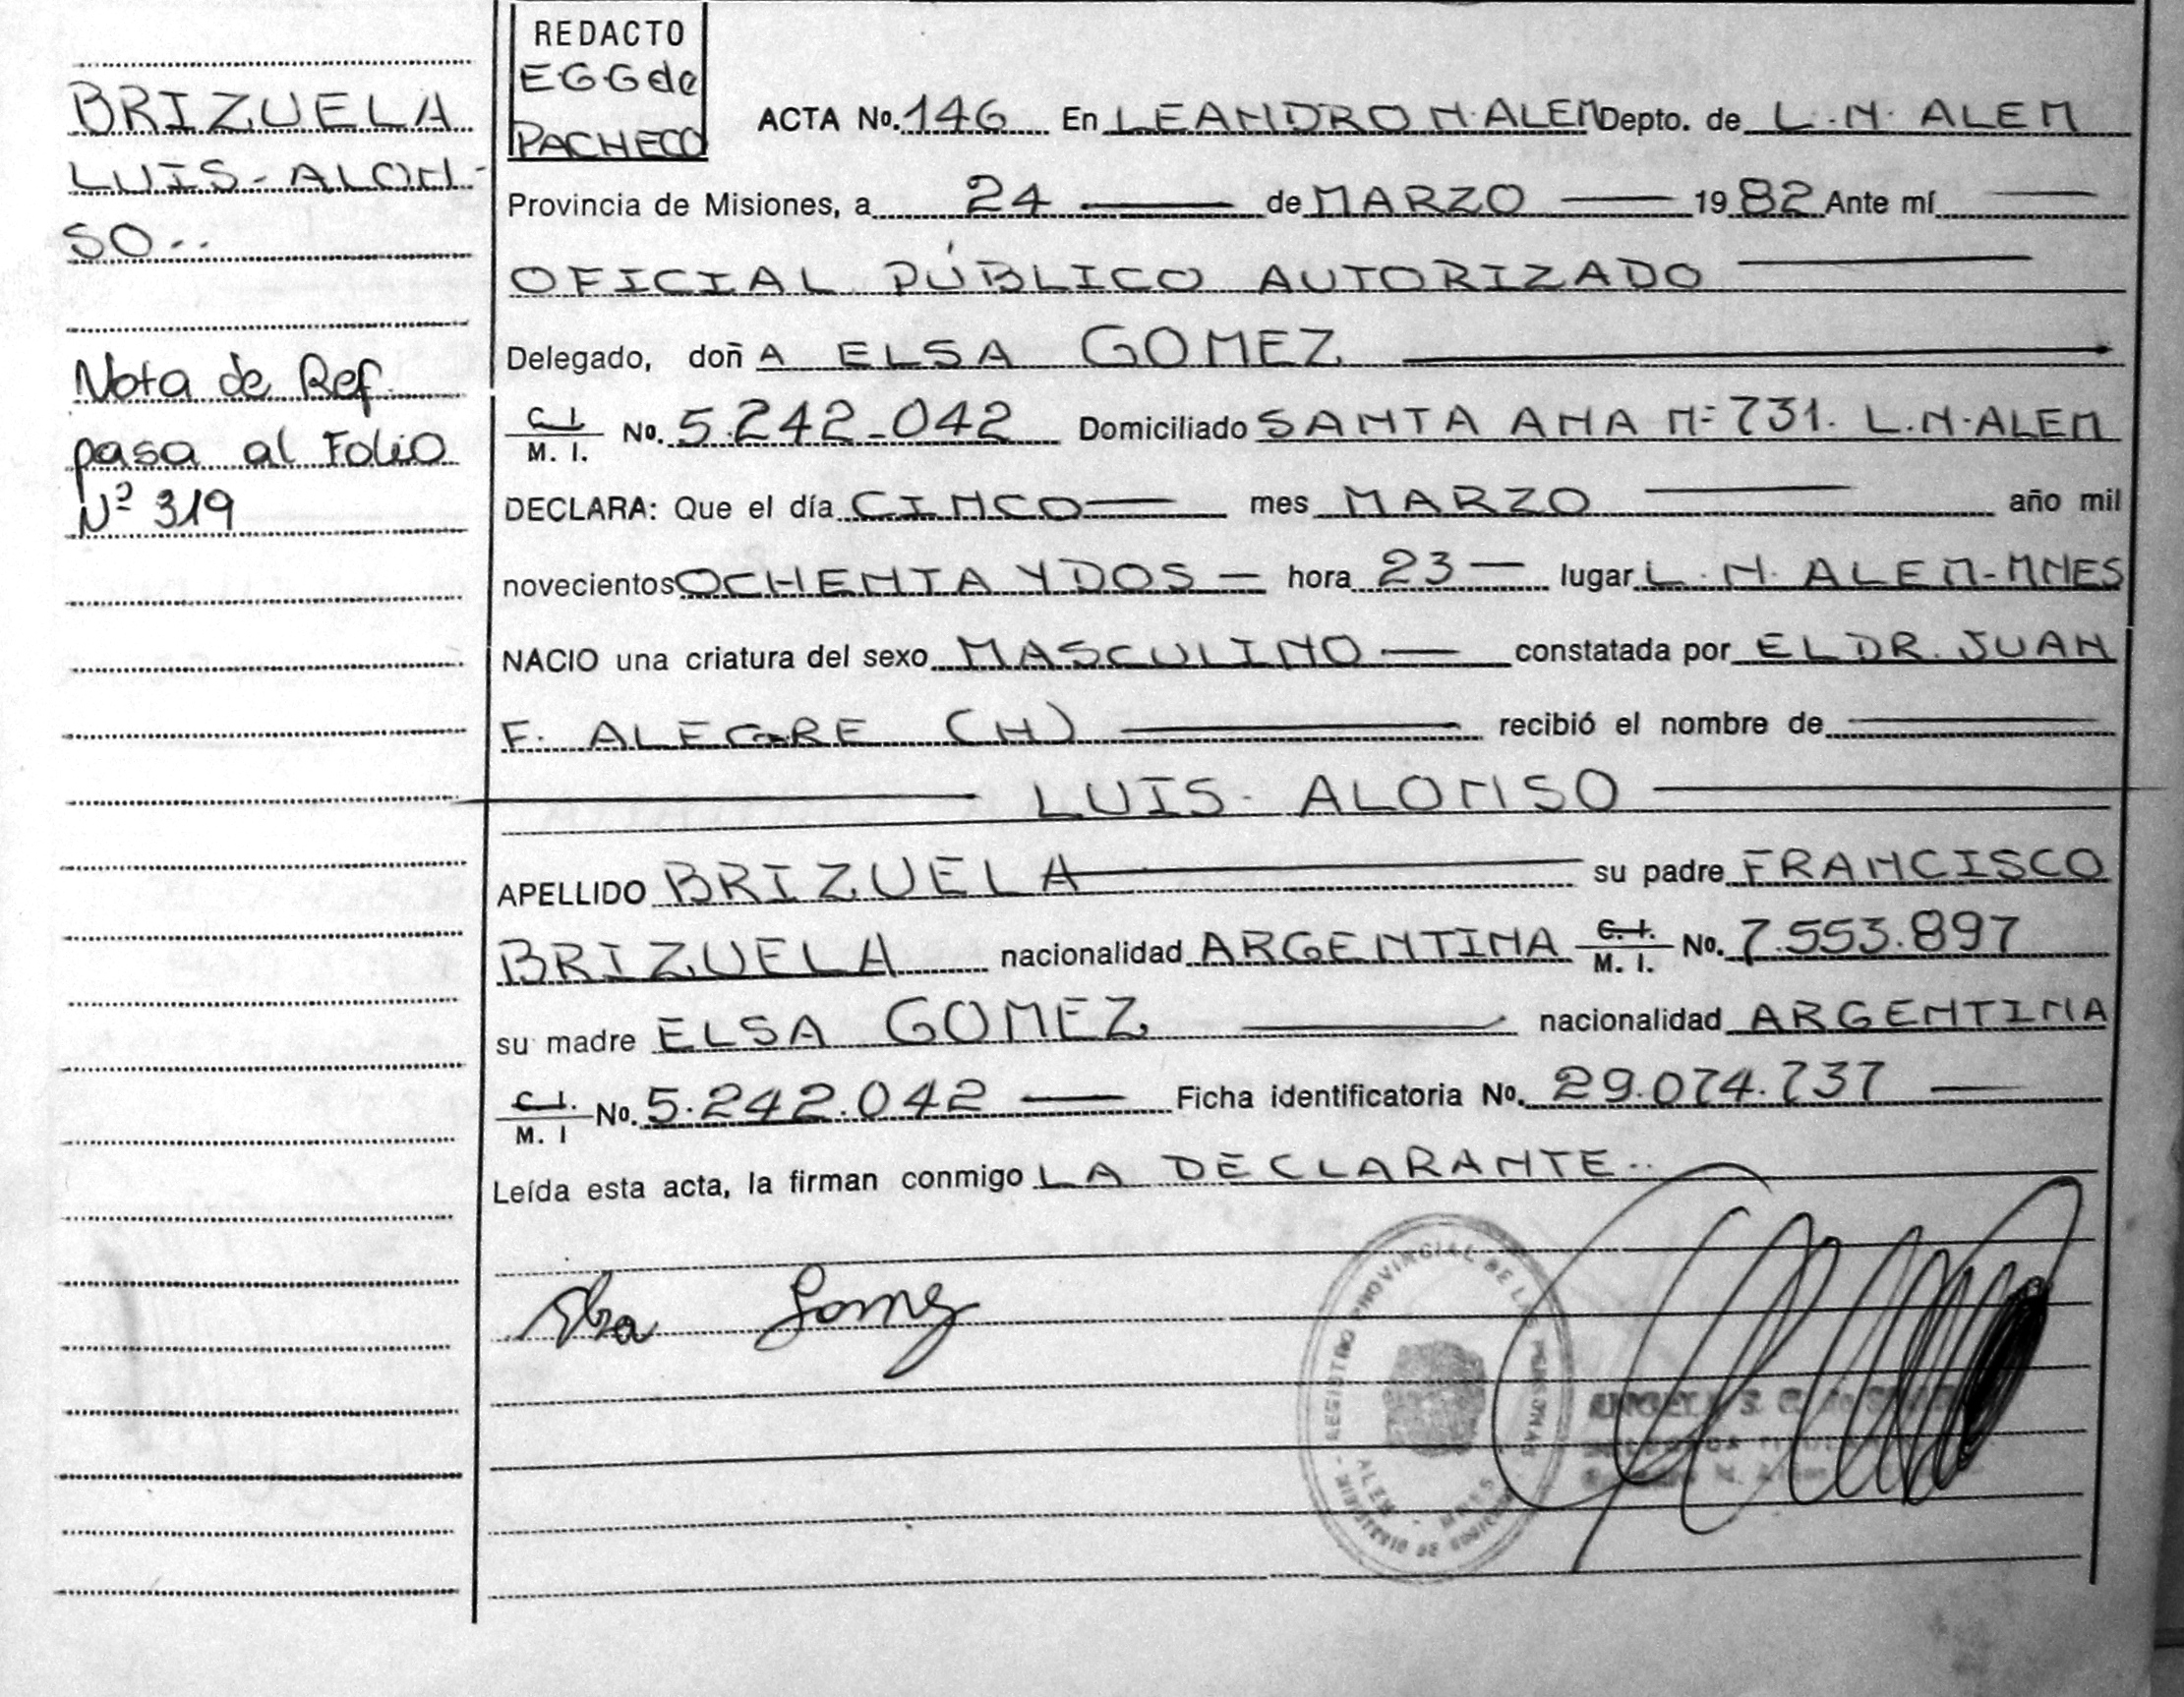 BRIZUELA
LUIS-ALON-
SO..
Nota de Ref.
pasa al Folio
Nº 319
REDACTO
EGGde
PACHECO
ACTA No. 146 En LEANDRO N. ALEM Depto. de L.N. ALEM
Provincia de Misiones, a 24 de MARZO 1982 Ante mí
OFICIAL PÚBLICO AUTORIZADO
Delegado, doñA ELSA GOMEZ
C.I. M. I. No. 5.242-042 Domiciliado SANTA ANA Nº 731. L.N.ALEM
DECLARA: Que el día CINCO mes MARZO año mil
novecientos OCHENTA Y DOS hora 23 lugar L.N. ALEM-MNES
NACIO una criatura del sexo MASCULINO constatada por EL DR. JUAN
F. ALEGRE (H) recibió el nombre de
LUIS- ALONSO
APELLIDO BRIZUELA su padre FRANCISCO
BRIZUELA nacionalidad ARGENTINA C.I. M. I. No. 7.553.897
su madre ELSA GOMEZ nacionalidad ARGENTINA
C.I. M. I No. 5.242.042 Ficha identificatoria No. 29.074.737
Leída esta acta, la firman conmigo LA DECLARANTE..
Elsa Gomez
REGISTRO PROVINCIAL DE LAS PERSONAS
ALEM - MNES